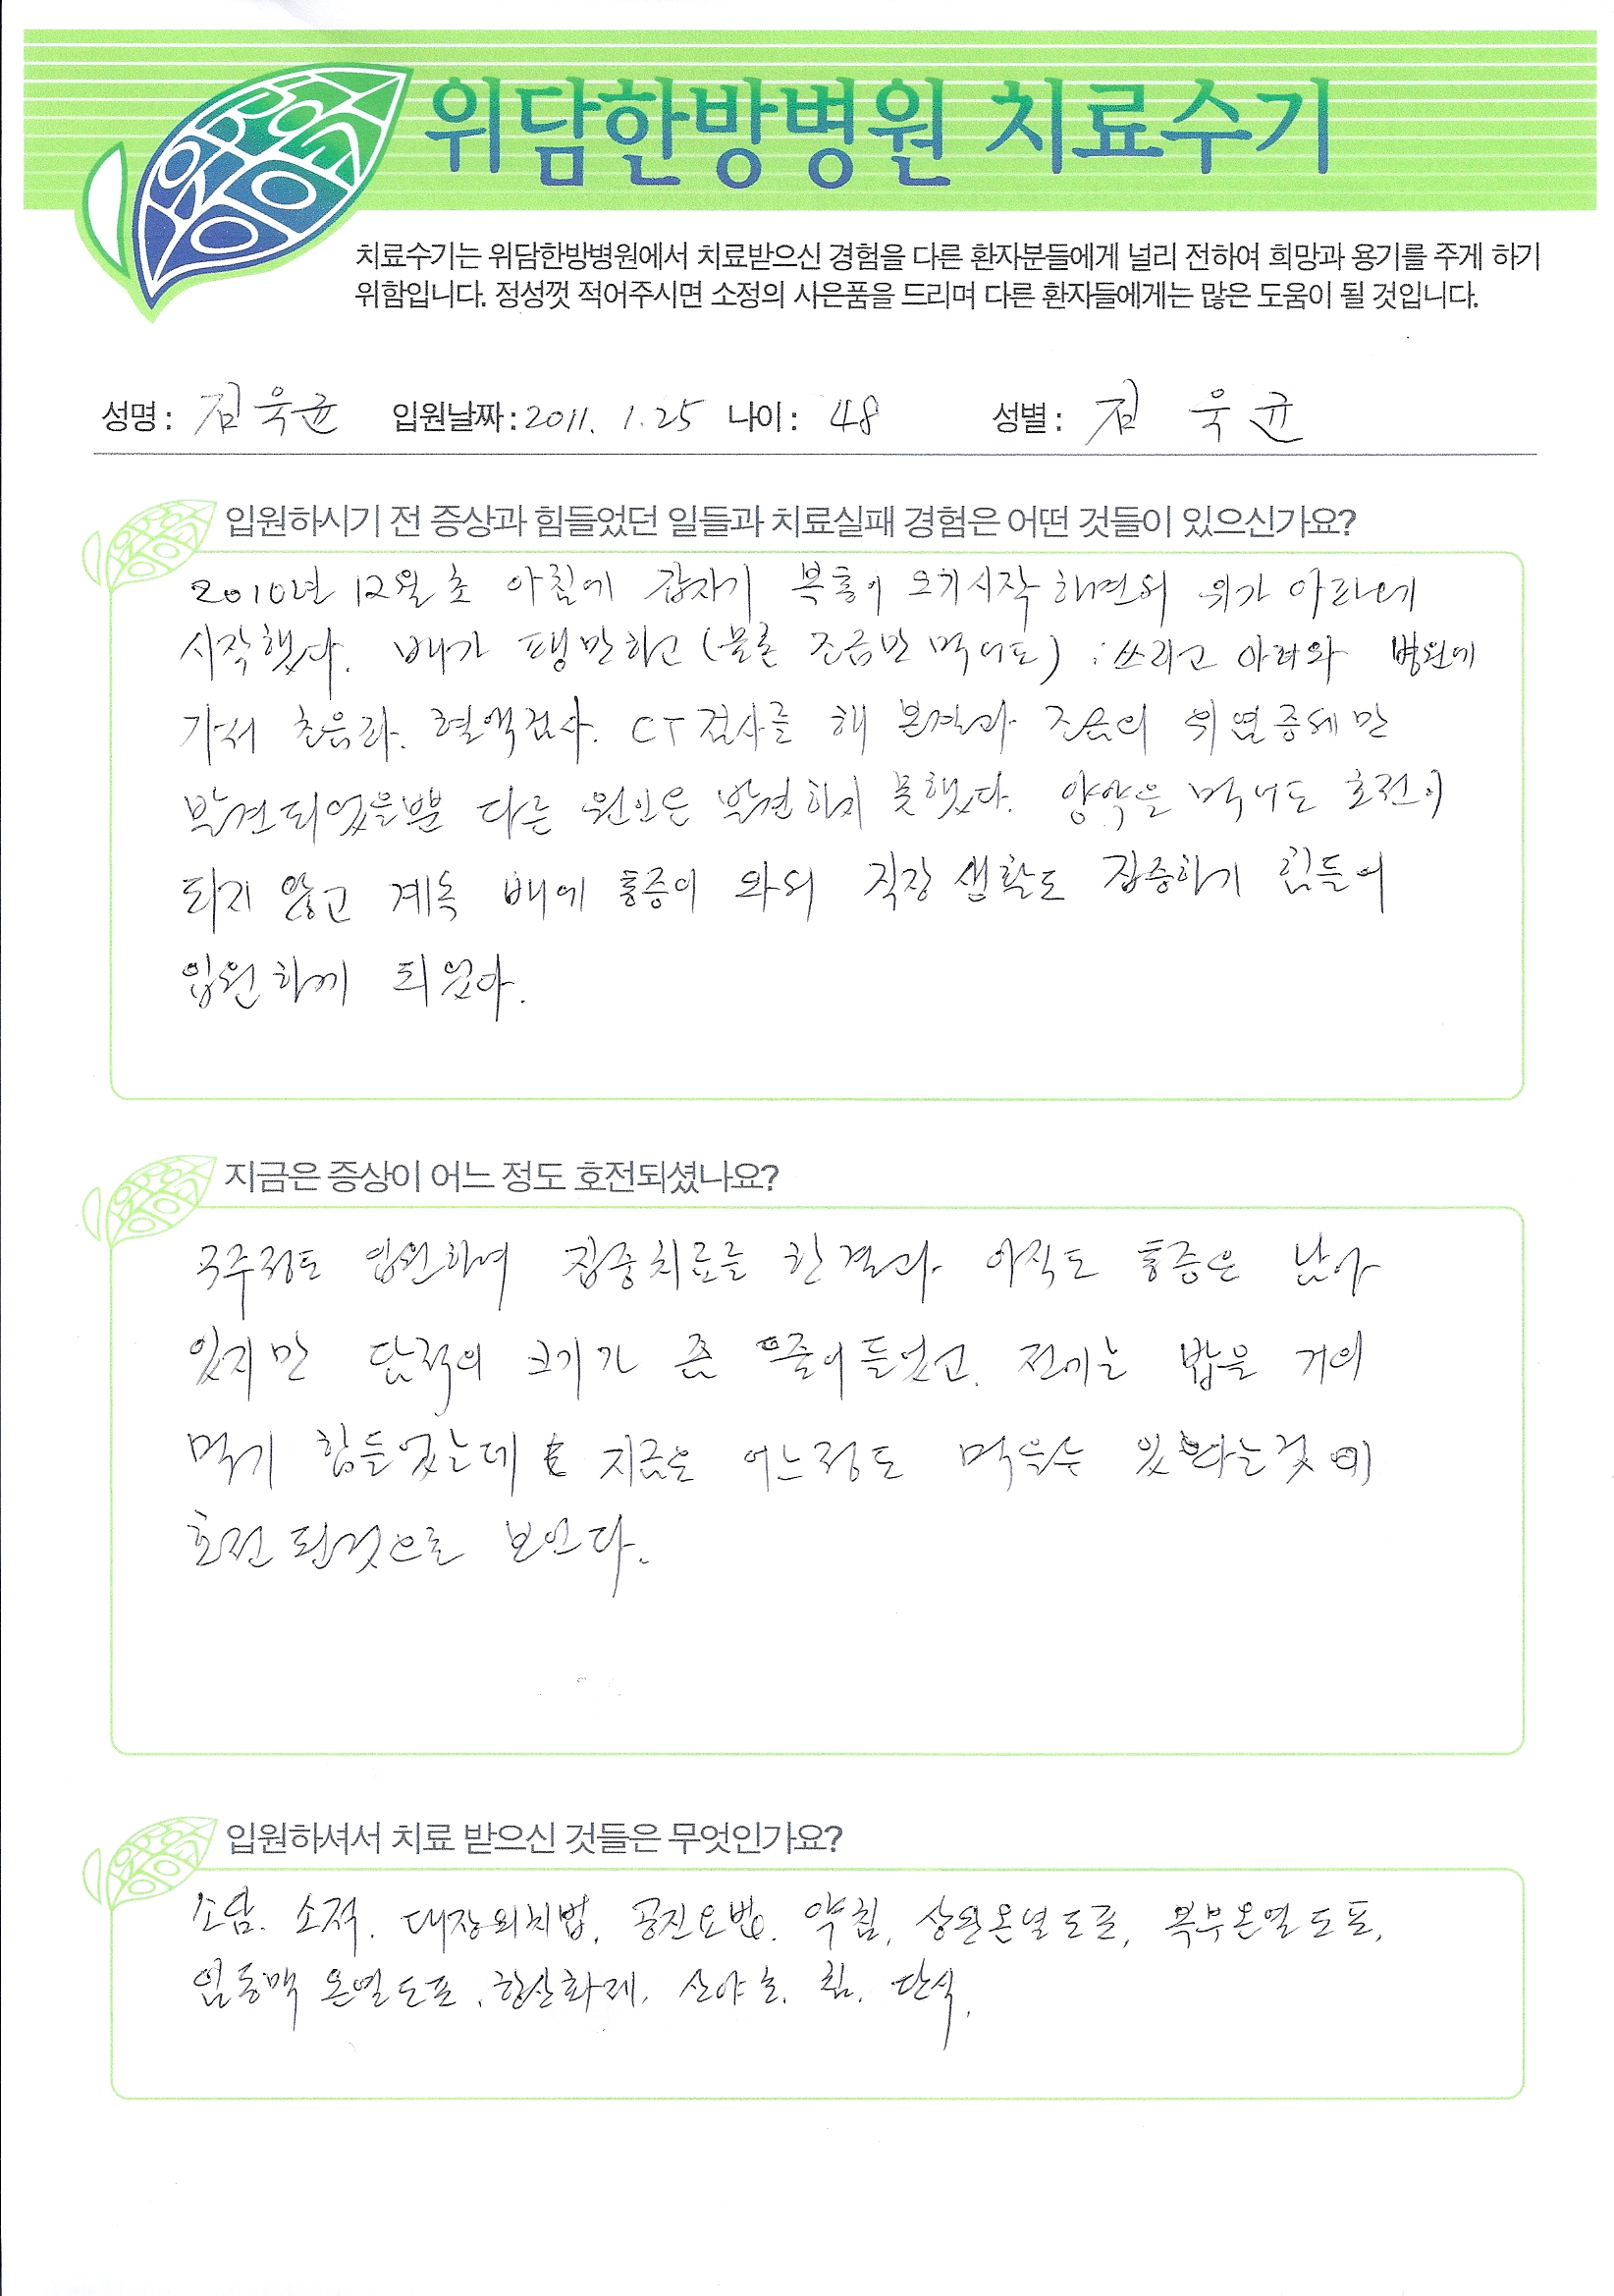 위담한방병원 치료수기
치료수기는 위담한방병원에서 치료받으신 경험을 다른 환자분들에게 널리 전하여 희망과 용기를 주게 하기
위함입니다. 정성껏 적어주시면 소정의 사은품을 드리며 다른 환자들에게는 많은 도움이 될 것입니다.
성명 : 김욱균 입원날짜 : 2011. 1. 25 나이 : 48 성별 : 김 욱 균
입원하시기 전 증상과 힘들었던 일들과 치료실패 경험은 어떤 것들이 있으신가요?
2010년 12월 초 아침에 갑자기 복통이 오기시작 하면서 위가 아프기
시작했다. 배가 팽만하고 (물론 조금만 먹어도) 쓰리고 아려와 병원에
가서 초음파. 혈액검사. CT 검사를 해 본결과 조금의 위염증세만
발견되었을뿐 다른 원인은 발견하지 못했다. 양약을 먹어도 호전이
되지 않고 계속 배에 통증이 와서 직장 생활도 집중하기 힘들어
입원하게 되었다.
지금은 증상이 어느 정도 호전되셨나요?
정도 입원하여 집중치료를 한결과 아직도 통증은 남아
있지만 담적의 크기가 좀 줄어들었고. 전에는 밥을 거의
먹기 힘들었는데 지금은 어느정도 먹을수 있다는것이
호전된것으로 보인다.
입원하셔서 치료 받으신 것들은 무엇인가요?
소담. 소적. 대장외치법. 공진요법. 약침. 상완온열도포, 복부온열도포,
온열도포. 항산화제. 산야초. 침. 단식.